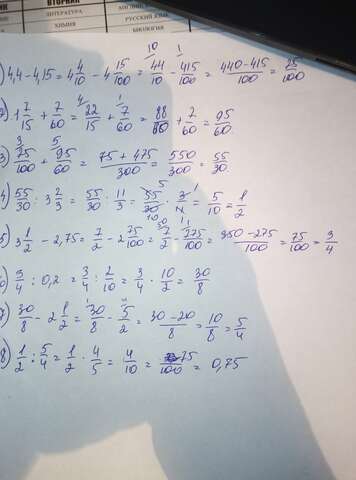 ВТОРНИК
ЛИТЕРАТУРА
ХИМИЯ
РУССКИЙ ЯЗЫК
БИОЛОГИЯ
) 4,4 - 4,15 = 4 4/10 - 4 15/100 = 44/10 - 415/100 = 440-415/100 = 25/100
2) 1 7/15 + 7/60 = 22/15 + 7/60 = 88/60 + 7/60 = 95/60
3) 25/100 + 95/60 = 75+475/300 = 550/300 = 55/30
4) 55/30 : 3 2/3 = 55/30 : 11/3 = 55/30 · 3/11 = 5/10 = 1/2
5) 3 1/2 - 2,75 = 7/2 - 2 75/100 = 7/2 - 275/100 = 350-275/100 = 75/100 = 3/4
6) 3/4 : 0,2 = 3/4 : 2/10 = 3/4 · 10/2 = 30/8
7) 30/8 - 2 1/2 = 30/8 - 5/2 = 30-20/8 = 10/8 = 5/4
8) 1/2 : 5/4 = 1/2 · 4/5 = 4/10 = 75/100 = 0,75